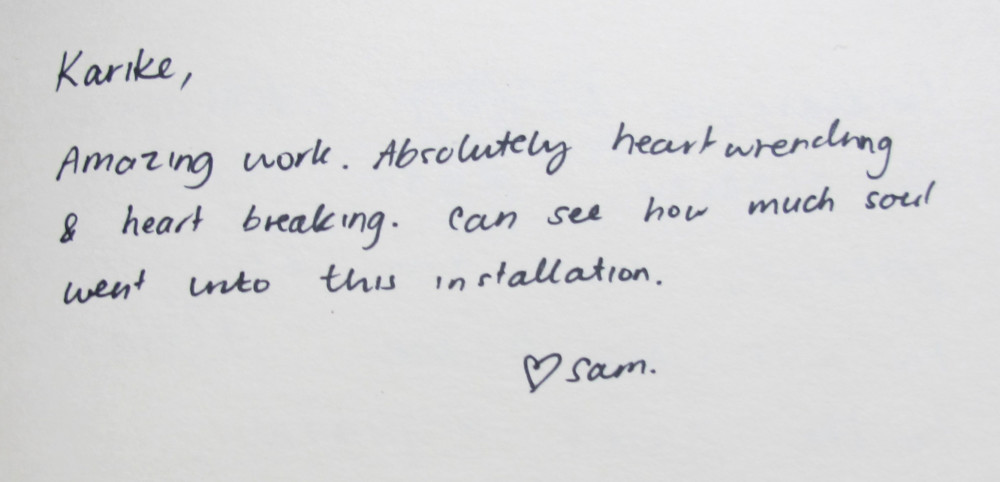 Karike,
Amazing work. Absolutely heart wrending
& heart breaking. Can see how much soul
went into this installation.
♡ Sam.